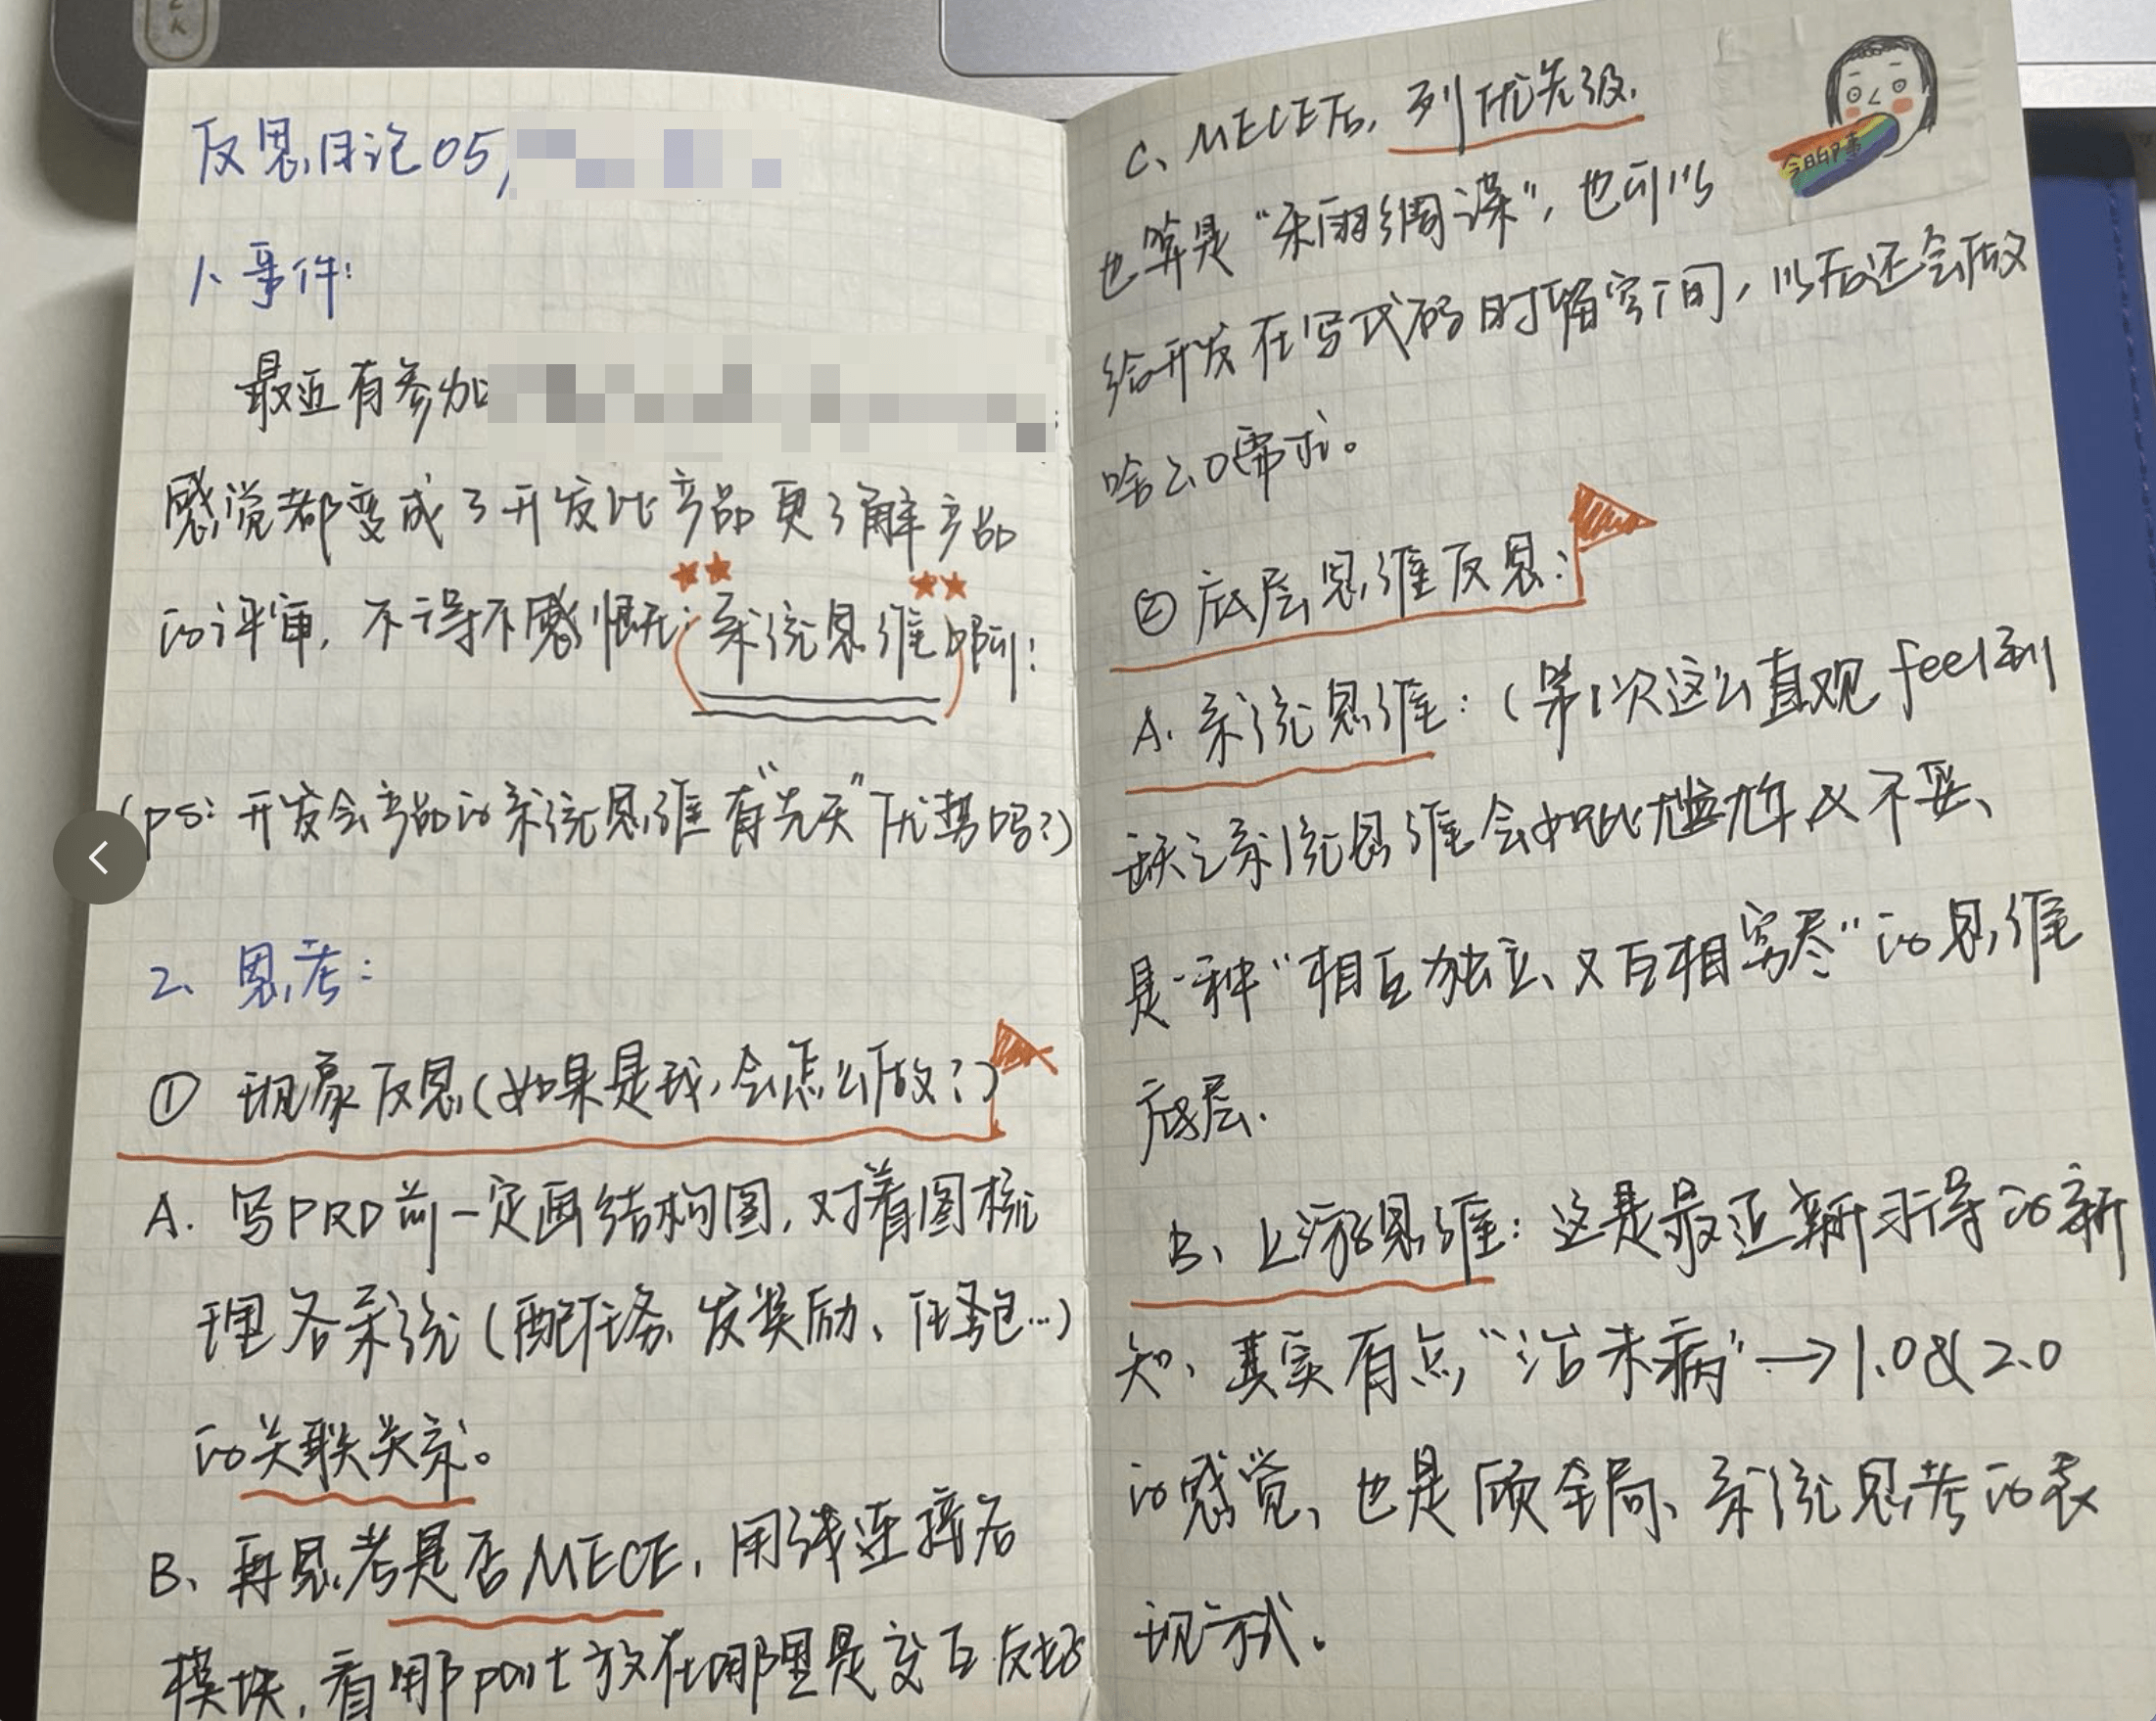 反思日记05,
1、事件:
最近有参加
感觉都变成了开发比产品更了解产品
的评审,不得不感慨:系统思维啊!
(ps:开发会产品的系统思维有“先天”优势吗?)
2、思考:
① 现象反思(如果是我,会怎么做?)
A. 写PRD前一定画结构图,对着图梳
理各系统(配任务、发奖励、任务包…)
的关联关系。
B、再思考是否MECE,用线连接各
模块,看哪part放在哪里是交互友好
C、MECE后,列优先级.
也算是“未雨绸谋”,也可以
给开发在写代码时留空间,以后还会做
啥2.0需求。
② 底层思维反思:
A. 系统思维:(第1次这么直观feel到
缺乏系统思维会如此尴尬又不妥、
是一种“相互独立、又互相穷尽”的思维
底层.
B、上游思维:这是最近新习得的新
知、其实有点“治未病”→1.0&2.0
的感觉、也是顾全局、系统思考的表
现方式。